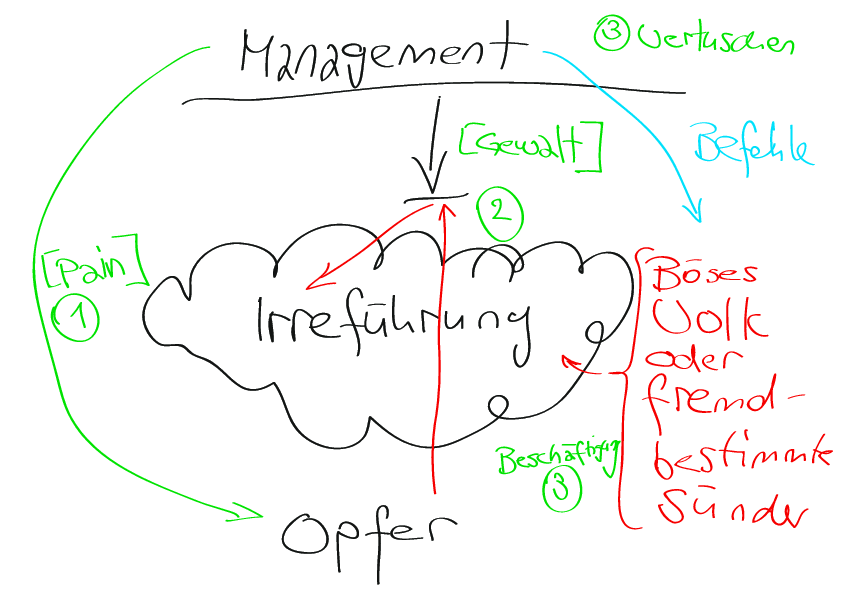 Management
③ Vertuschen
[Gewalt]
Befehle
②
[Pain]
①
Irreführung
Böses
Volk
oder
fremd-
bestimmte
Sünder
Beschäftigung
③
Opfer